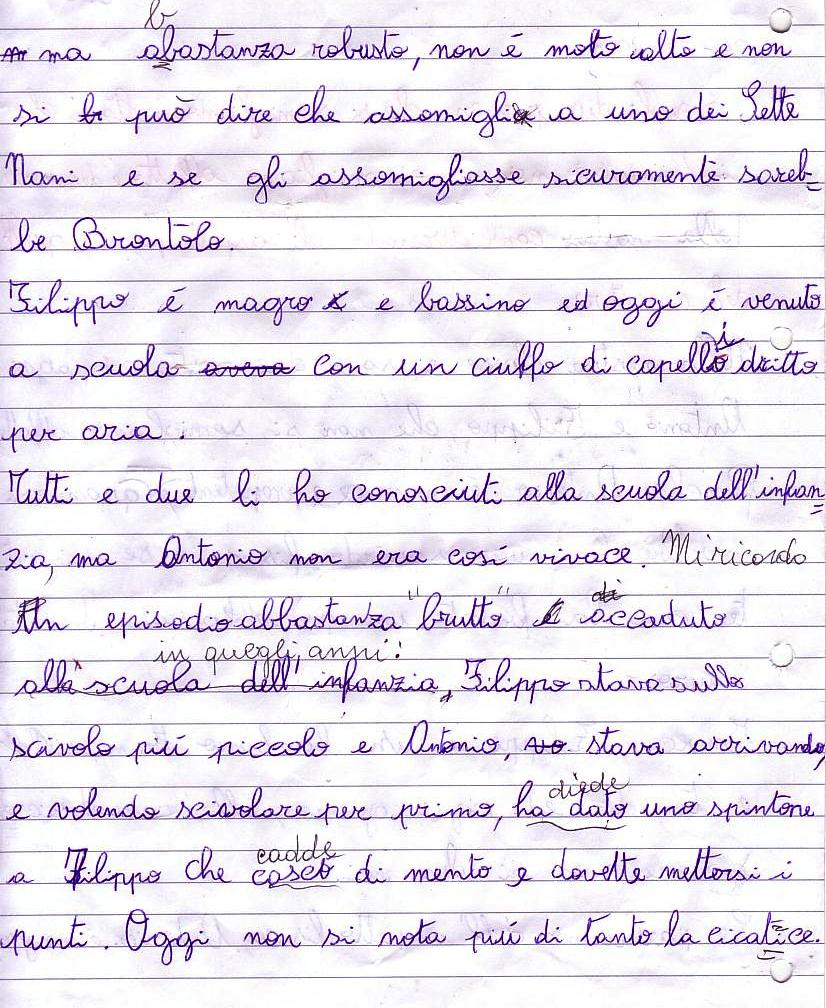 b
ma abastanza robusto, non é molto alto e non
si può dire che assomigli a uno dei Sette
Nani e se gli assomigliasse sicuramente sareb-
be Brontolo.
Filippo é magro e bassino ed oggi é venuto
i
a scuola aveva con un ciuffo di capello dritto
per aria.
Tutti e due li ho conosciuti alla scuola dell'infan
zia, ma Antonio non era cosí vivace. Mi ricordo
di
Un episodio abbastanza "brutto" accaduto
in quegli anni:
alla scuola dell'infanzia, Filippo stava sullo
scivolo piú piccolo e Antonio, stava arrivando,
diede
e volendo scivolare per primo, ha dato uno spintone
cadde
a Filippo che cascò di mento e dovette mettersi i
punti. Oggi non si nota piú di tanto la cicatice.